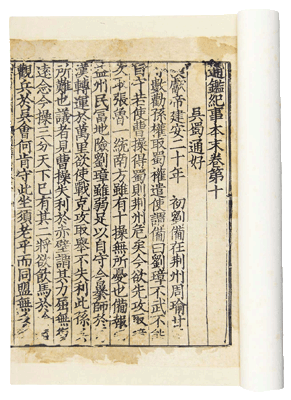 通鑑紀事本末卷第十
吳蜀通好
漢獻帝建安二十年 初劉備在荊州周瑜甘
數勸孫權取蜀權遣使謂備曰劉璋不武不能
自守若使曹操得蜀則荊州危矣今欲先攻取
次取張魯一統南方雖有十操無所憂也備報
益州民富地險劉璋雖弱足以自守今暴師於
漢轉運於萬里欲使戰克攻取舉不失利此孫
所難也議者見曹操失利於赤壁謂其力屈無
遠念今操三分天下已有其二將欲飲馬於
觀兵於吳會何肯守此坐須老乎而同盟無